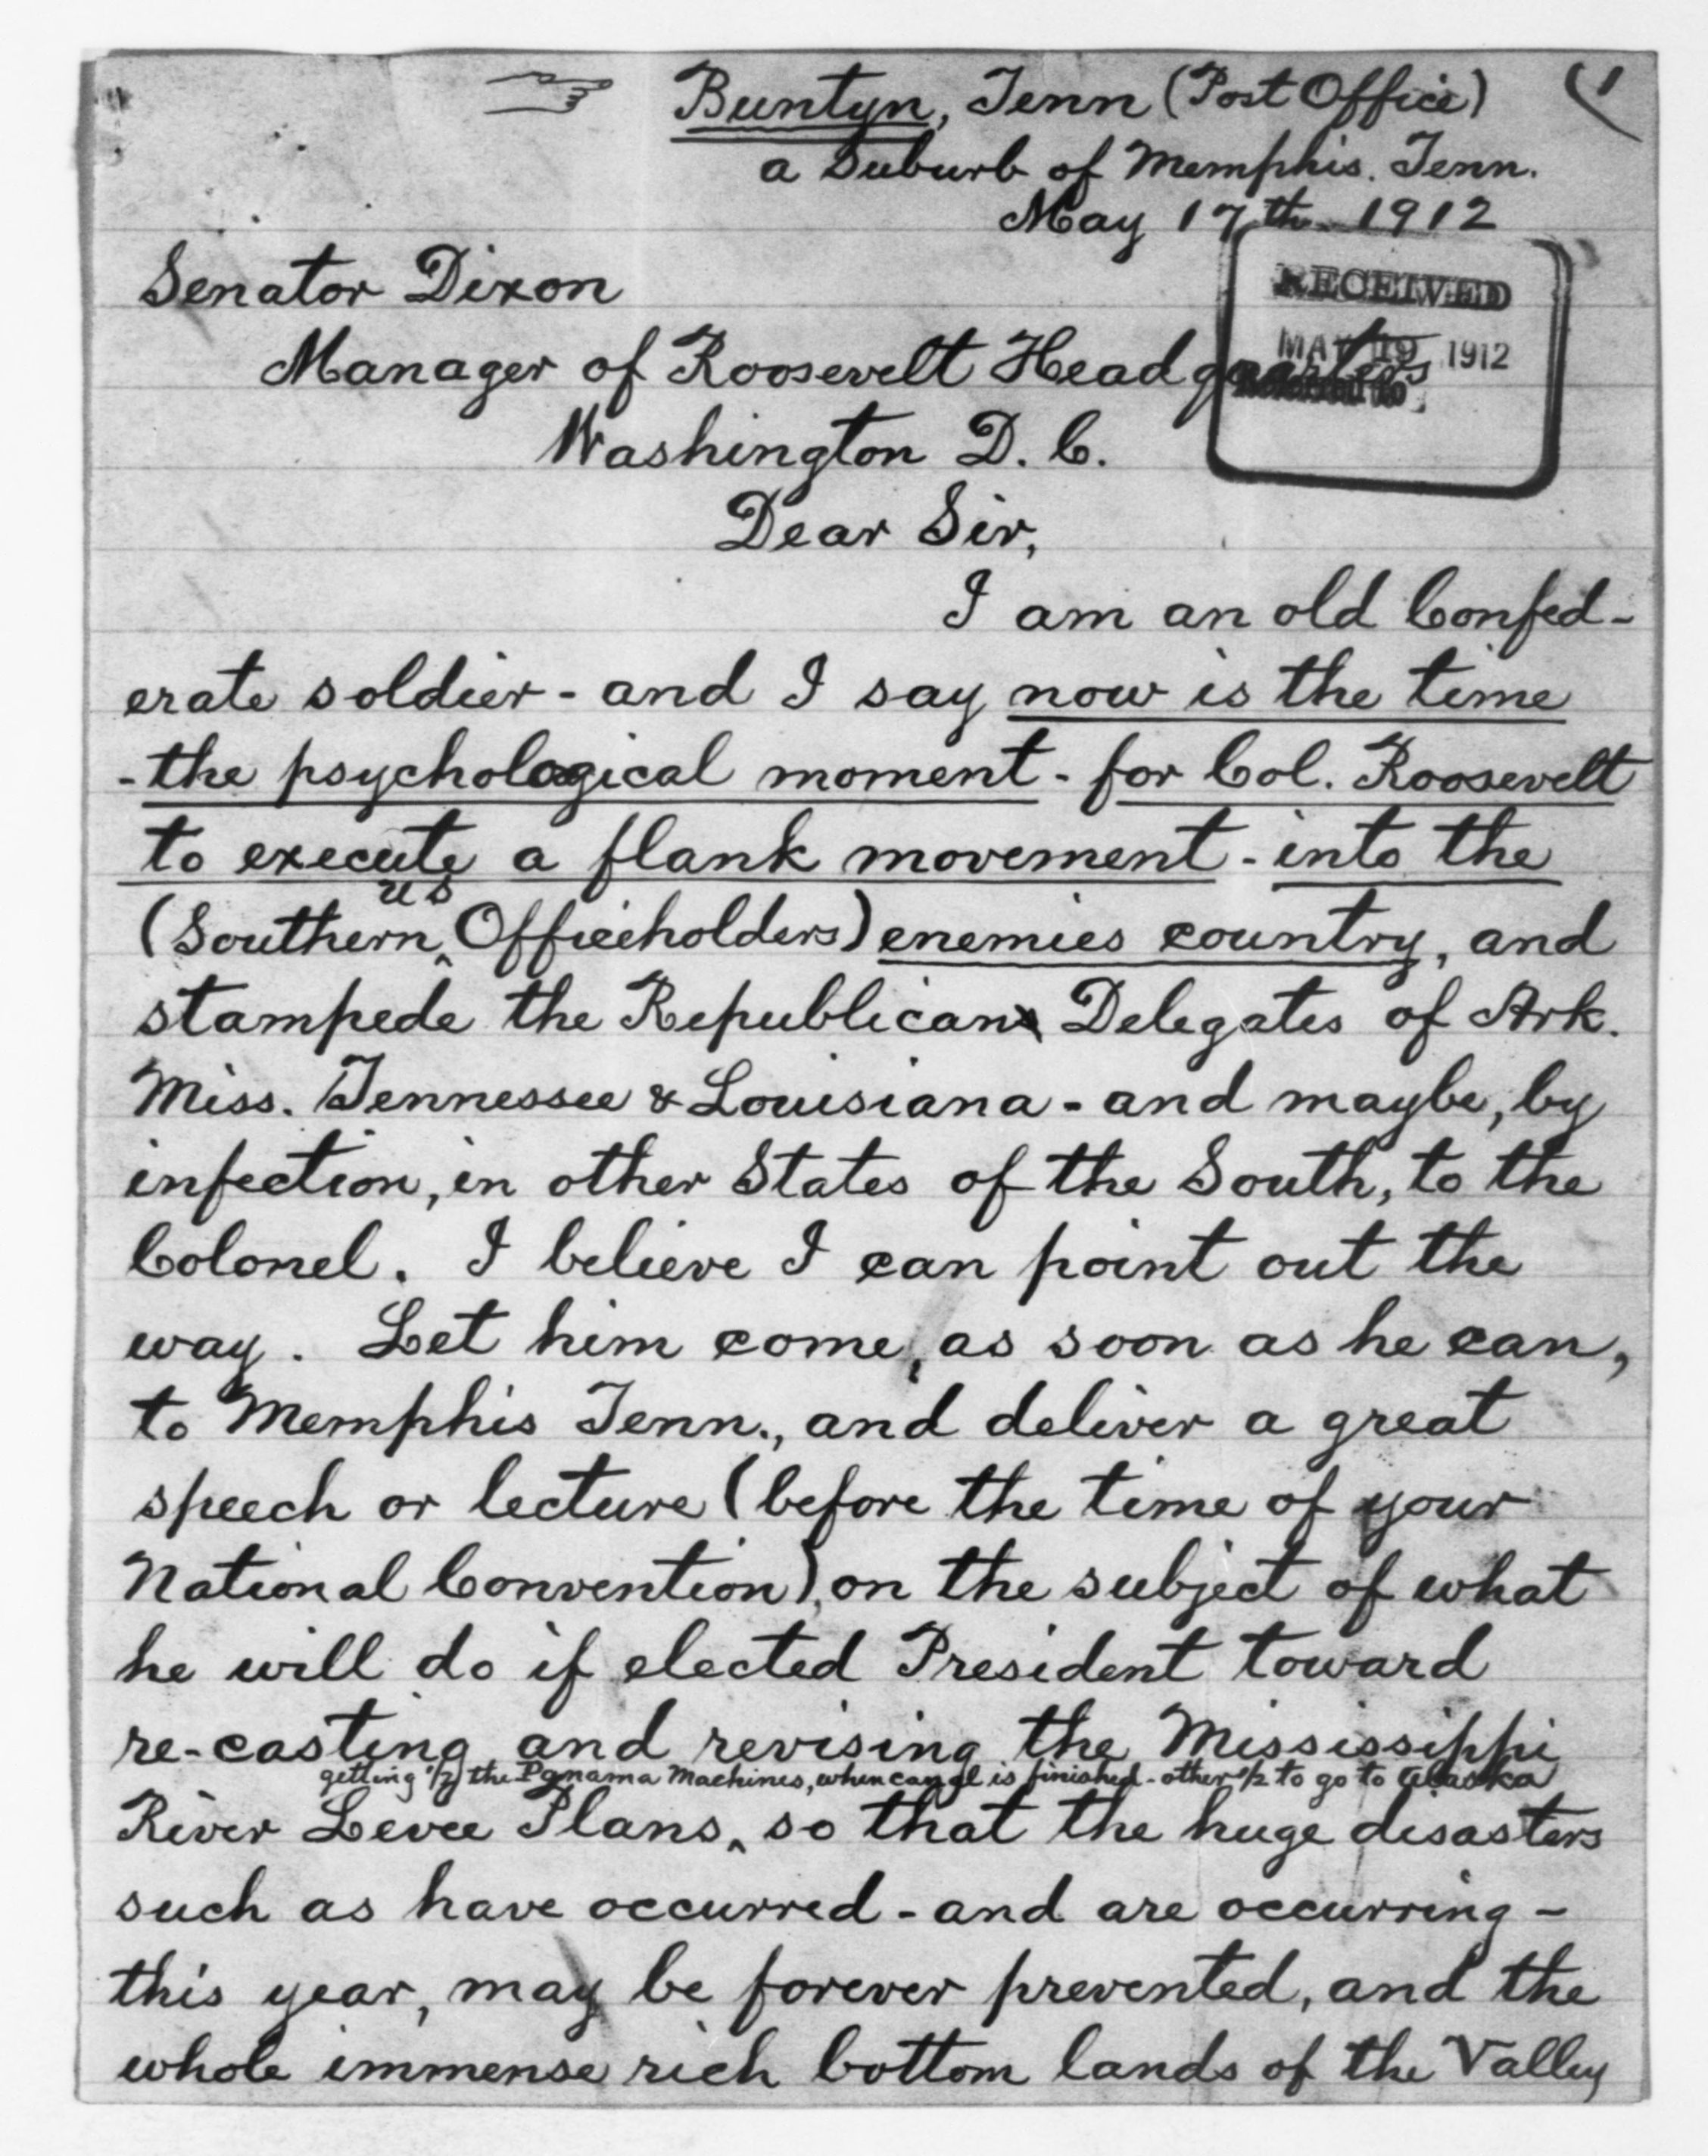 Buntyn, Tenn (Post Office) (1
a Suburb of Memphis. Tenn.
May 17th 1912
Senator Dixon
RECEIVED
MAY 19 1912
Manager of Roosevelt Headquarters
Washington D. C.
Dear Sir,
I am an old Confed-
erate soldier - and I say now is the time
- the psychological moment - for Col. Roosevelt
to execute a flank movement - into the
us
(Southern ‸ Officeholders) enemies country, and
stampede the Republican Delegates of Ark.
Miss. Tennessee & Louisiana - and maybe, by
infection, in other States of the South, to the
Colonel. I believe I can point out the
way. Let him come, as soon as he can,
to Memphis Tenn., and deliver a great
speech or lecture (before the time of your
National Convention), on the subject of what
he will do if elected President toward
re-casting and revising the Mississippi
getting 1/2 the Panama Machines, when canal is finished - other 1/2 to go to Alaska
River Levee Plans ‸ so that the huge disasters
such as have occurred - and are occurring -
this year, may be forever prevented, and the
whole immense rich bottom lands of the Valley